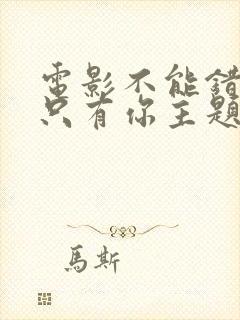 電影不能錯
只有你主題
馬斯